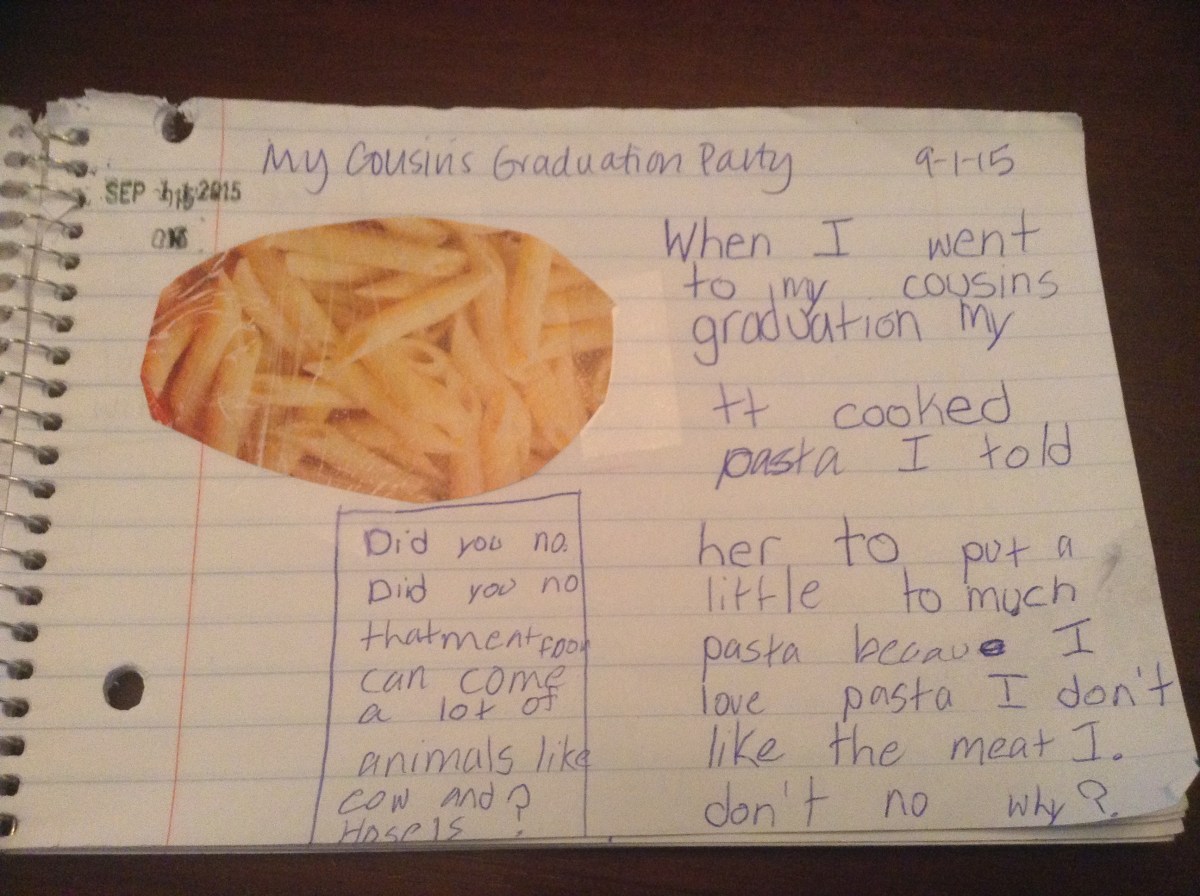 My Cousin's Graduation Party 9-1-15
SEP 2015
When I went
to my cousins
graduation my
tt cooked
pasta I told
her to put a
little to much
pasta becaue I
love pasta I don't
like the meat I.
don't no why?.
Did you no.
Did you no
that ment foor
can come
a lot of
animals like
cow and ?
Hosels